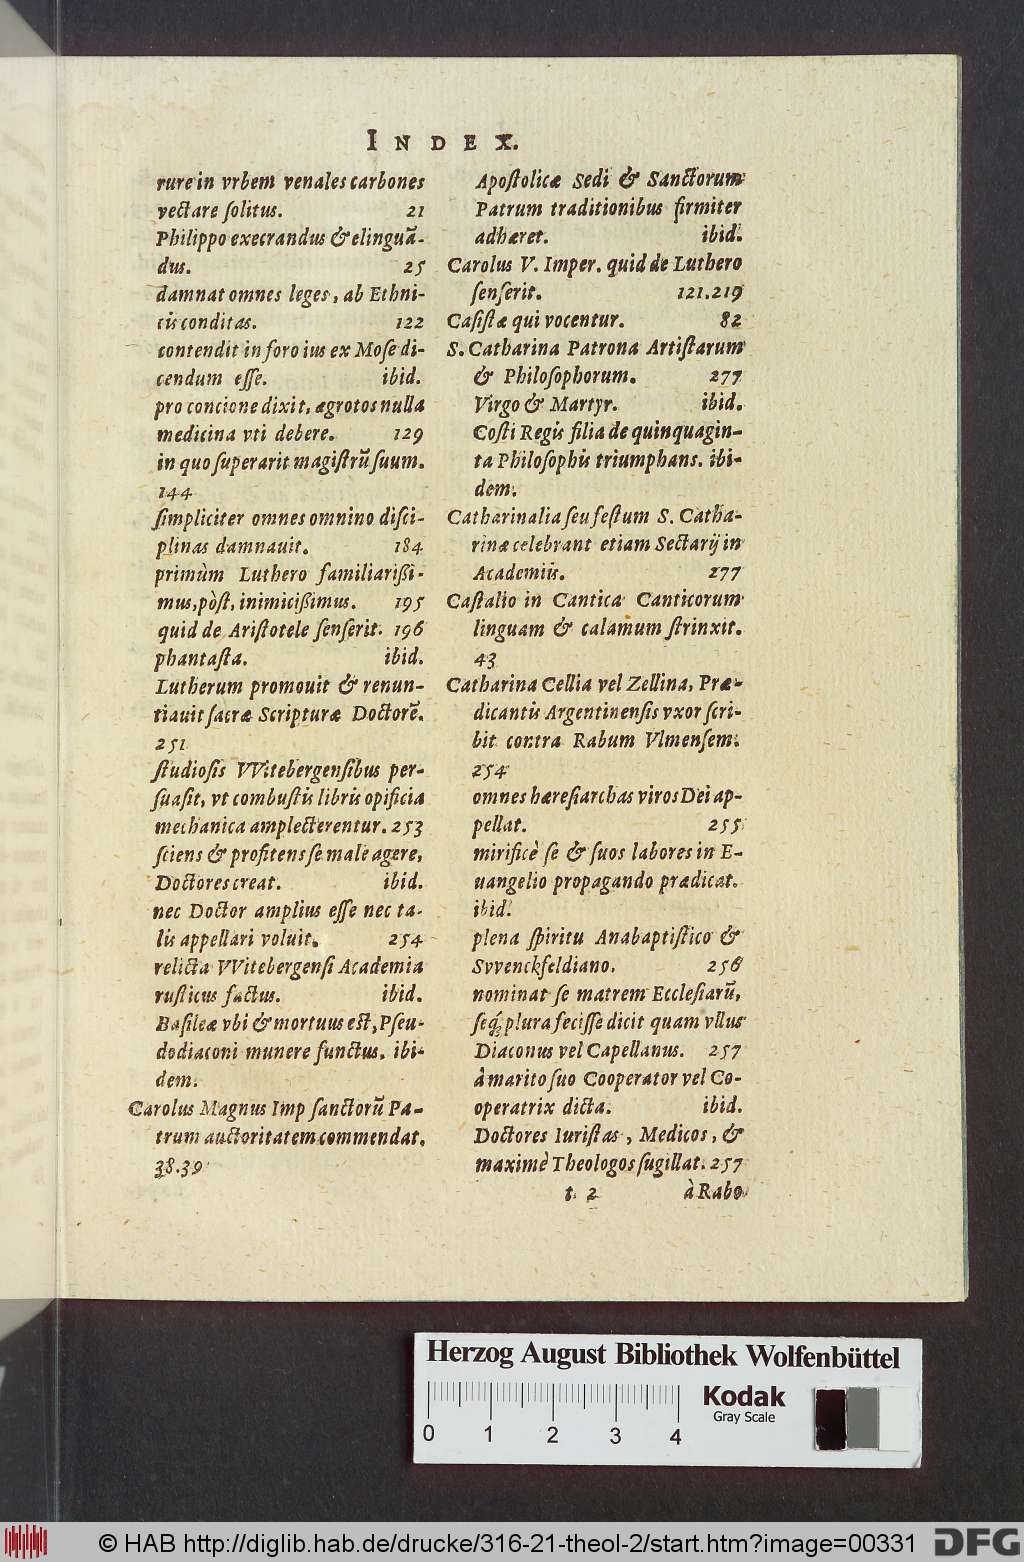 INDEX.
rure in vrbem venales carbones
vectare ſolitus. 21
Philippo execrandus & elinguā-
dus. 25
damnat omnes leges, ab Ethni-
cis conditas. 122
contendit in foro ius ex Moſe di-
cendum eſſe. ibid.
pro concione dixit, ægrotos nulla
medicina vti debere. 129
in quo ſuperarit magiſtrū ſuum.
144
ſimpliciter omnes omnino diſci-
plinas damnauit. 184
primùm Luthero familiarißi-
mus, pòſt, inimicißimus. 195
quid de Ariſtotele ſenſerit. 196
phantaſta. ibid.
Lutherum promouit & renun-
tiauit ſacræ Scripturæ Doctorē.
251
ſtudioſis VVitebergenſibus per-
ſuaſit, vt combuſtis libris opificia
mechanica amplecterentur. 253
ſciens & profitens ſe male agere,
Doctores creat. ibid.
nec Doctor amplius eſſe nec ta-
lis appellari voluit. 254
relicta VVitebergenſi Academia
ruſticus factus. ibid.
Baſileæ vbi & mortuus eſt, Pſeu-
dodiaconi munere functus. ibi-
dem.
Carolus Magnus Imp ſanctorū Pa-
trum auctoritatem commendat.
38.39
Apoſtolicæ Sedi & Sanctorum
Patrum traditionibus firmiter
adhæret. ibid.
Carolus V. Imper. quid de Luthero
ſenſerit. 121.219
Caſiſtæ qui vocentur. 82
S. Catharina Patrona Artiſtarum
& Philoſophorum. 277
Virgo & Martyr. ibid.
Coſti Regis filia de quinquagin-
ta Philoſophis triumphans. ibi-
dem.
Catharinalia ſeu feſtum S. Catha-
rinæ celebrant etiam Sectarij in
Academiis. 277
Caſtalio in Cantica Canticorum
linguam & calamum ſtrinxit.
43
Catharina Cellia vel Zellina, Præ-
dicantis Argentinenſis vxor ſcri-
bit contra Rabum Vlmenſem.
254
omnes hæreſiarchas viros Dei ap-
pellat. 255
mirificè ſe & ſuos labores in E-
uangelio propagando prædicat.
ibid.
plena ſpiritu Anabaptiſtico &
Svvenckfeldiano. 256
nominat ſe matrem Eccleſiarū,
ſeq́; plura feciſſe dicit quam vllus
Diaconus vel Capellanus. 257
à marito ſuo Cooperator vel Co-
operatrix dicta. ibid.
Doctores Iuriſtas, Medicos, &
maximè Theologos ſugillat. 257
t 2 à Rabo
Herzog August Bibliothek Wolfenbüttel
Kodak
Gray Scale
0 1 2 3 4
© HAB http://diglib.hab.de/drucke/316-21-theol-2/start.htm?image=00331
DFG